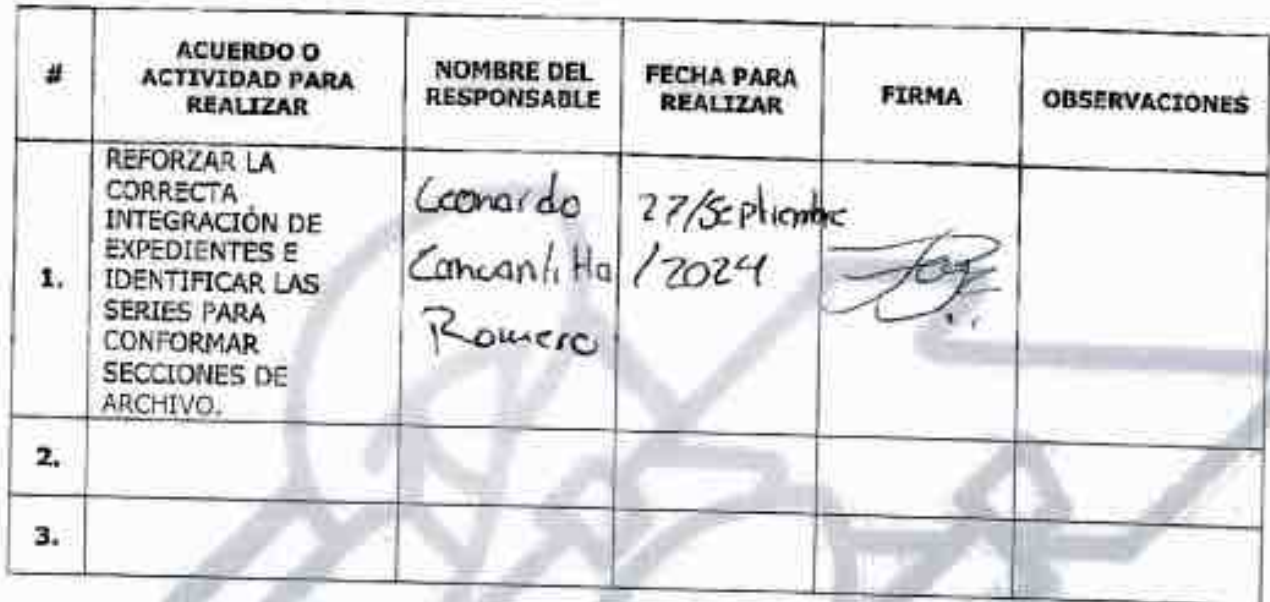 #
ACUERDO O
ACTIVIDAD PARA
REALIZAR
NOMBRE DEL
RESPONSABLE
FECHA PARA
REALIZAR
FIRMA
OBSERVACIONES
1.
REFORZAR LA
CORRECTA
INTEGRACIÓN DE
EXPEDIENTES E
IDENTIFICAR LAS
SERIES PARA
CONFORMAR
SECCIONES DE
ARCHIVO.
Leonardo
Romero
27/Septiembre
/2024
2.
3.